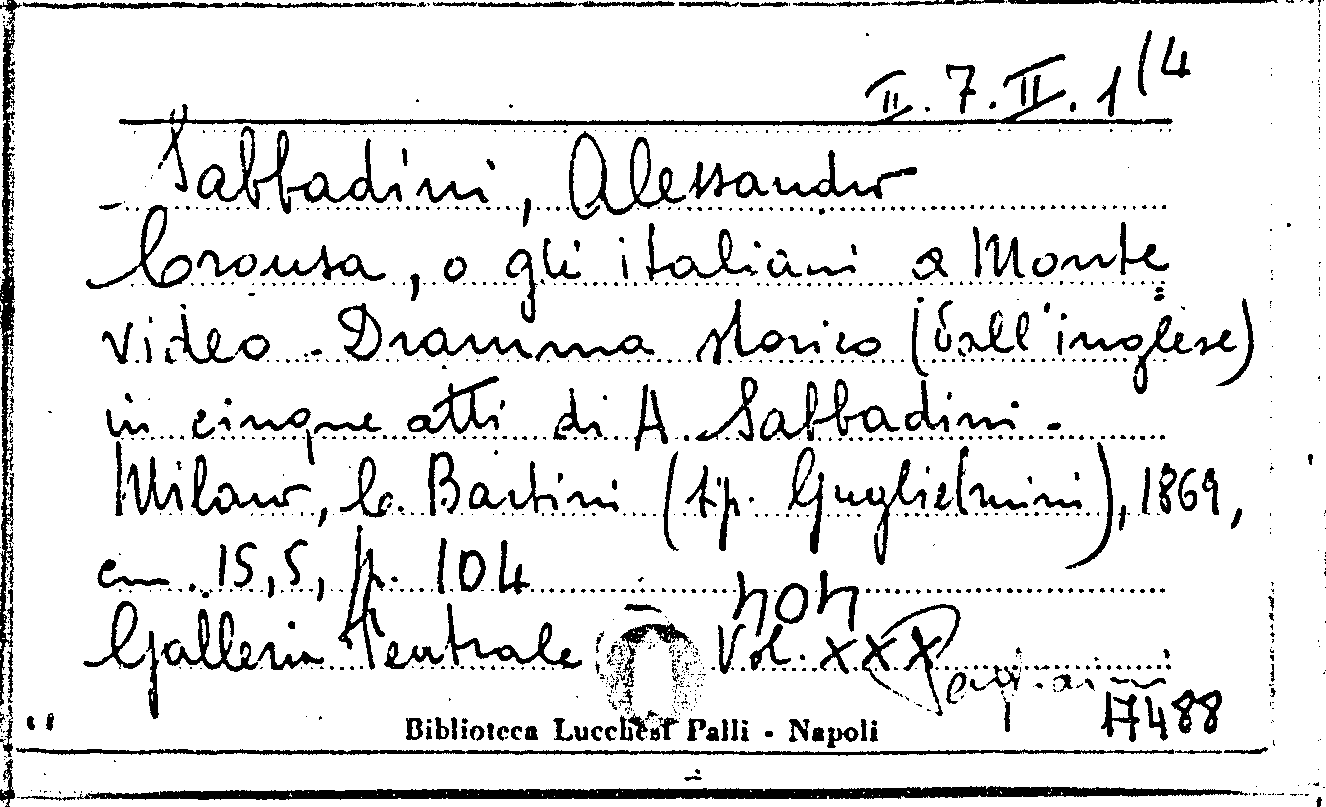 II. 7. II. 1(4
Sabbadini, Alessandro
Crousa, o gli italiani a Monte=
video - Dramma storico (dall'inglese)
in cinque atti di A Sabbadini -
Milano, C. Barbini (tip. Guglielmini), 1869,
cm. 15,5, pp. 104
non
Galleria Teatrale Vol. XXX
17488
Biblioteca Lucchesi Palli - Napoli